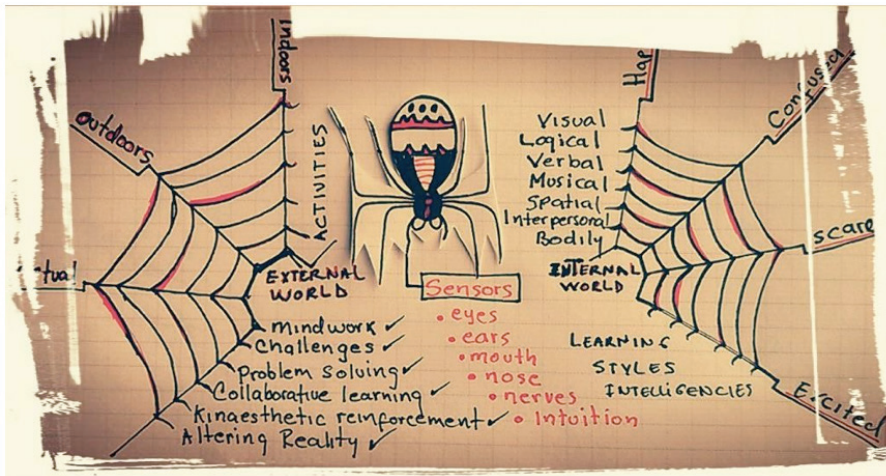 indoors
outdoors
tual
ACTIVITIES
EXTERNAL
WORLD
Mindwork ✓
Challenges ✓
Problem Solving ✓
Collaborative learning ✓
Kinaesthetic reinforcement ✓
Altering Reality ✓
Sensors
• eyes
• ears
• mouth
• nose
• nerves
• Intuition
Visual
Logical
Verbal
Musical
Spatial
Interpersonal
Bodily
INTERNAL
WORLD
LEARNING
STYLES
INTELLIGENCIES
Hap
Confused
scare
Excited